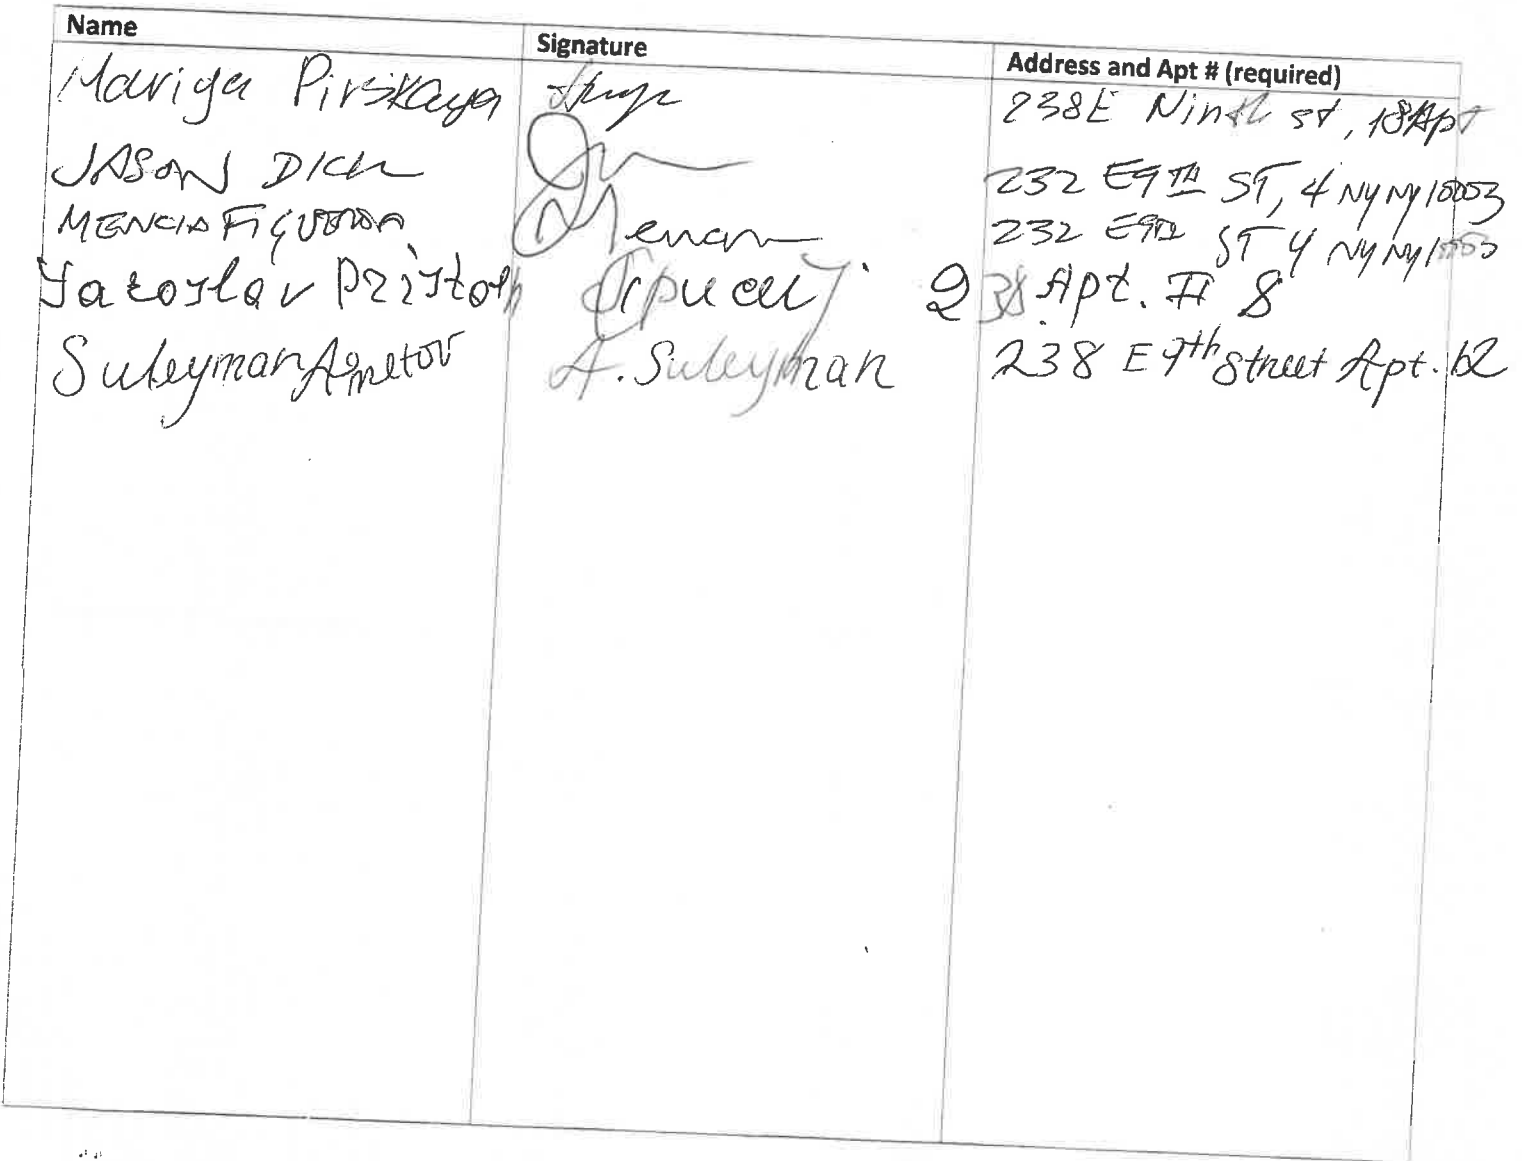 Name Signature Address and Apt # (required)
Mariya Pirskaya 238E Ninth st, 18Apt
JASON DICK 232 E9TH ST, 4 NY NY 10003
MENCIA FIGUEROA Menca 232 E9TH ST 4 NY NY 10003
Yaroslav 238 Apt. # 8
Suleyman Ametov A. Suleyman 238 E 9th Street Apt. 12